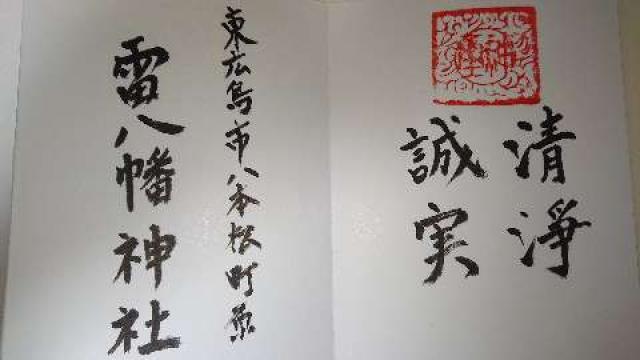 清淨
誠実
東広島市八本松町原
雷八幡神社